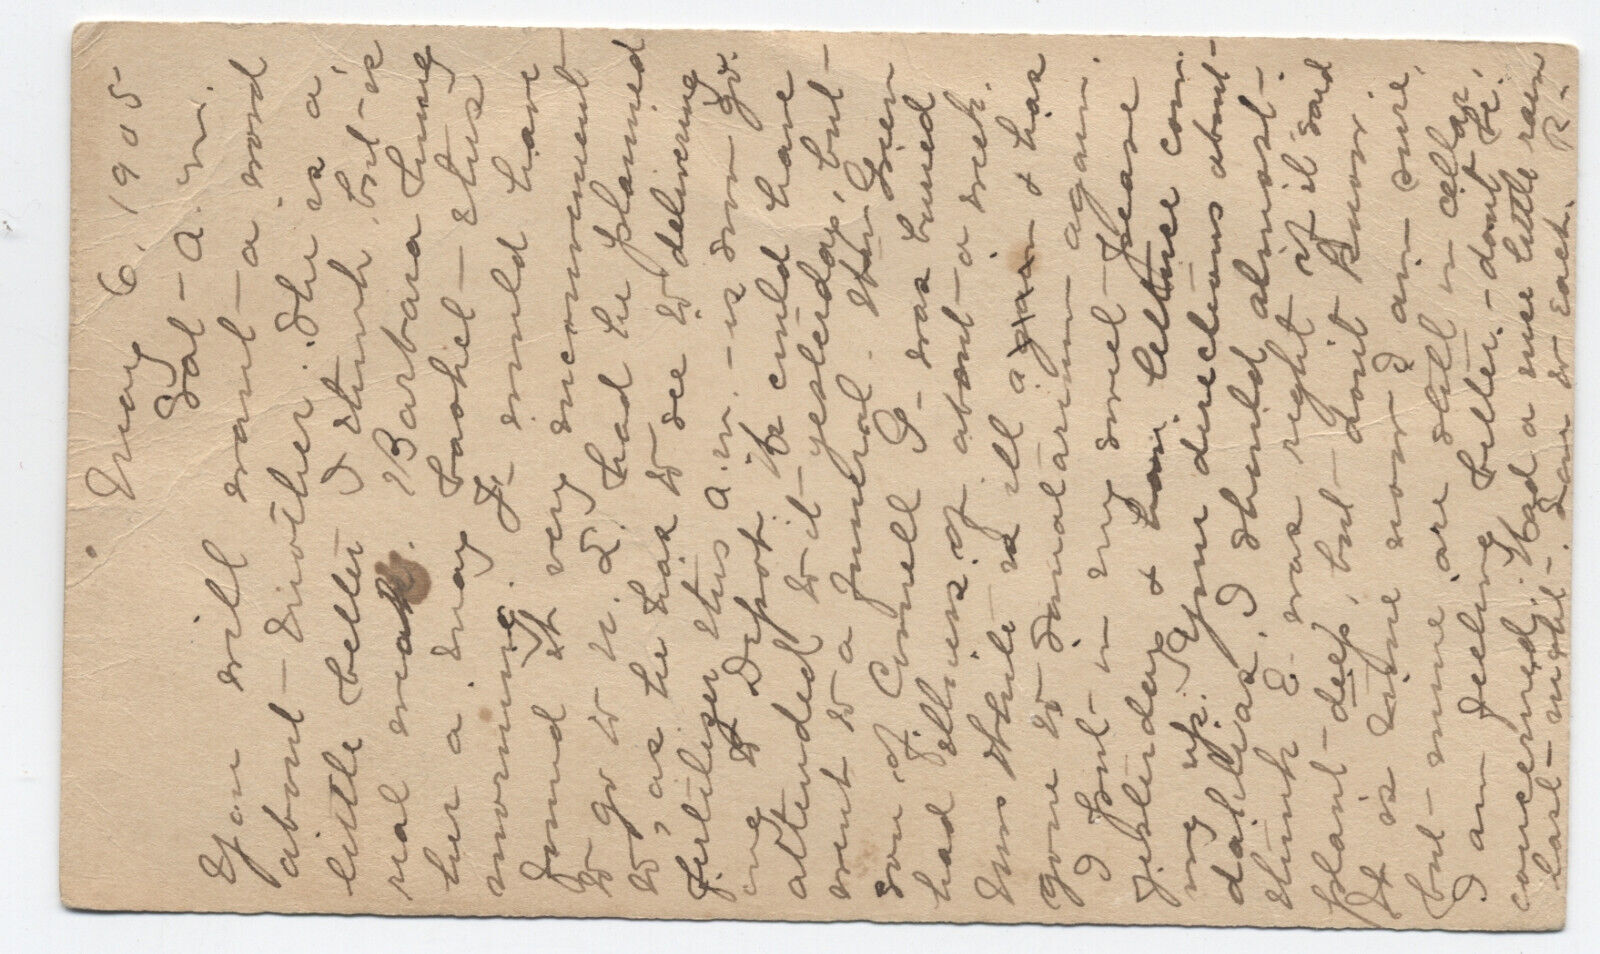 May 6, 1905
Sat - A.m.
You will want - a word
about - Mother. She is a
little better I think, but - is
real weak. Barbara hung
her a may basket - this
morning. F- would have
found it very inconvenient
to go to N. L. had he planned
to, as he has to see to delivering
fertilizer this a.m. - is now gr.
ing to Depot. He could have
attended to it - yesterday, but -
went to a funeral. Stein
son of Cornell G - was buried
had illness of about - a week.
Tom Shule is ill again & has
gone to Sanatarium again.
I put - in my sweet - pease
yesterday & have lettuce com-
ing up. Your directions about -
dahlias, I should almost -
think E - was right if it said
plant - deep, but - dont know.
It is time now I am sure,
but - mine are still in cellar.
I am feeling better. - dont be
concerned. Had a nice little rain
last - night. Love to each. R.